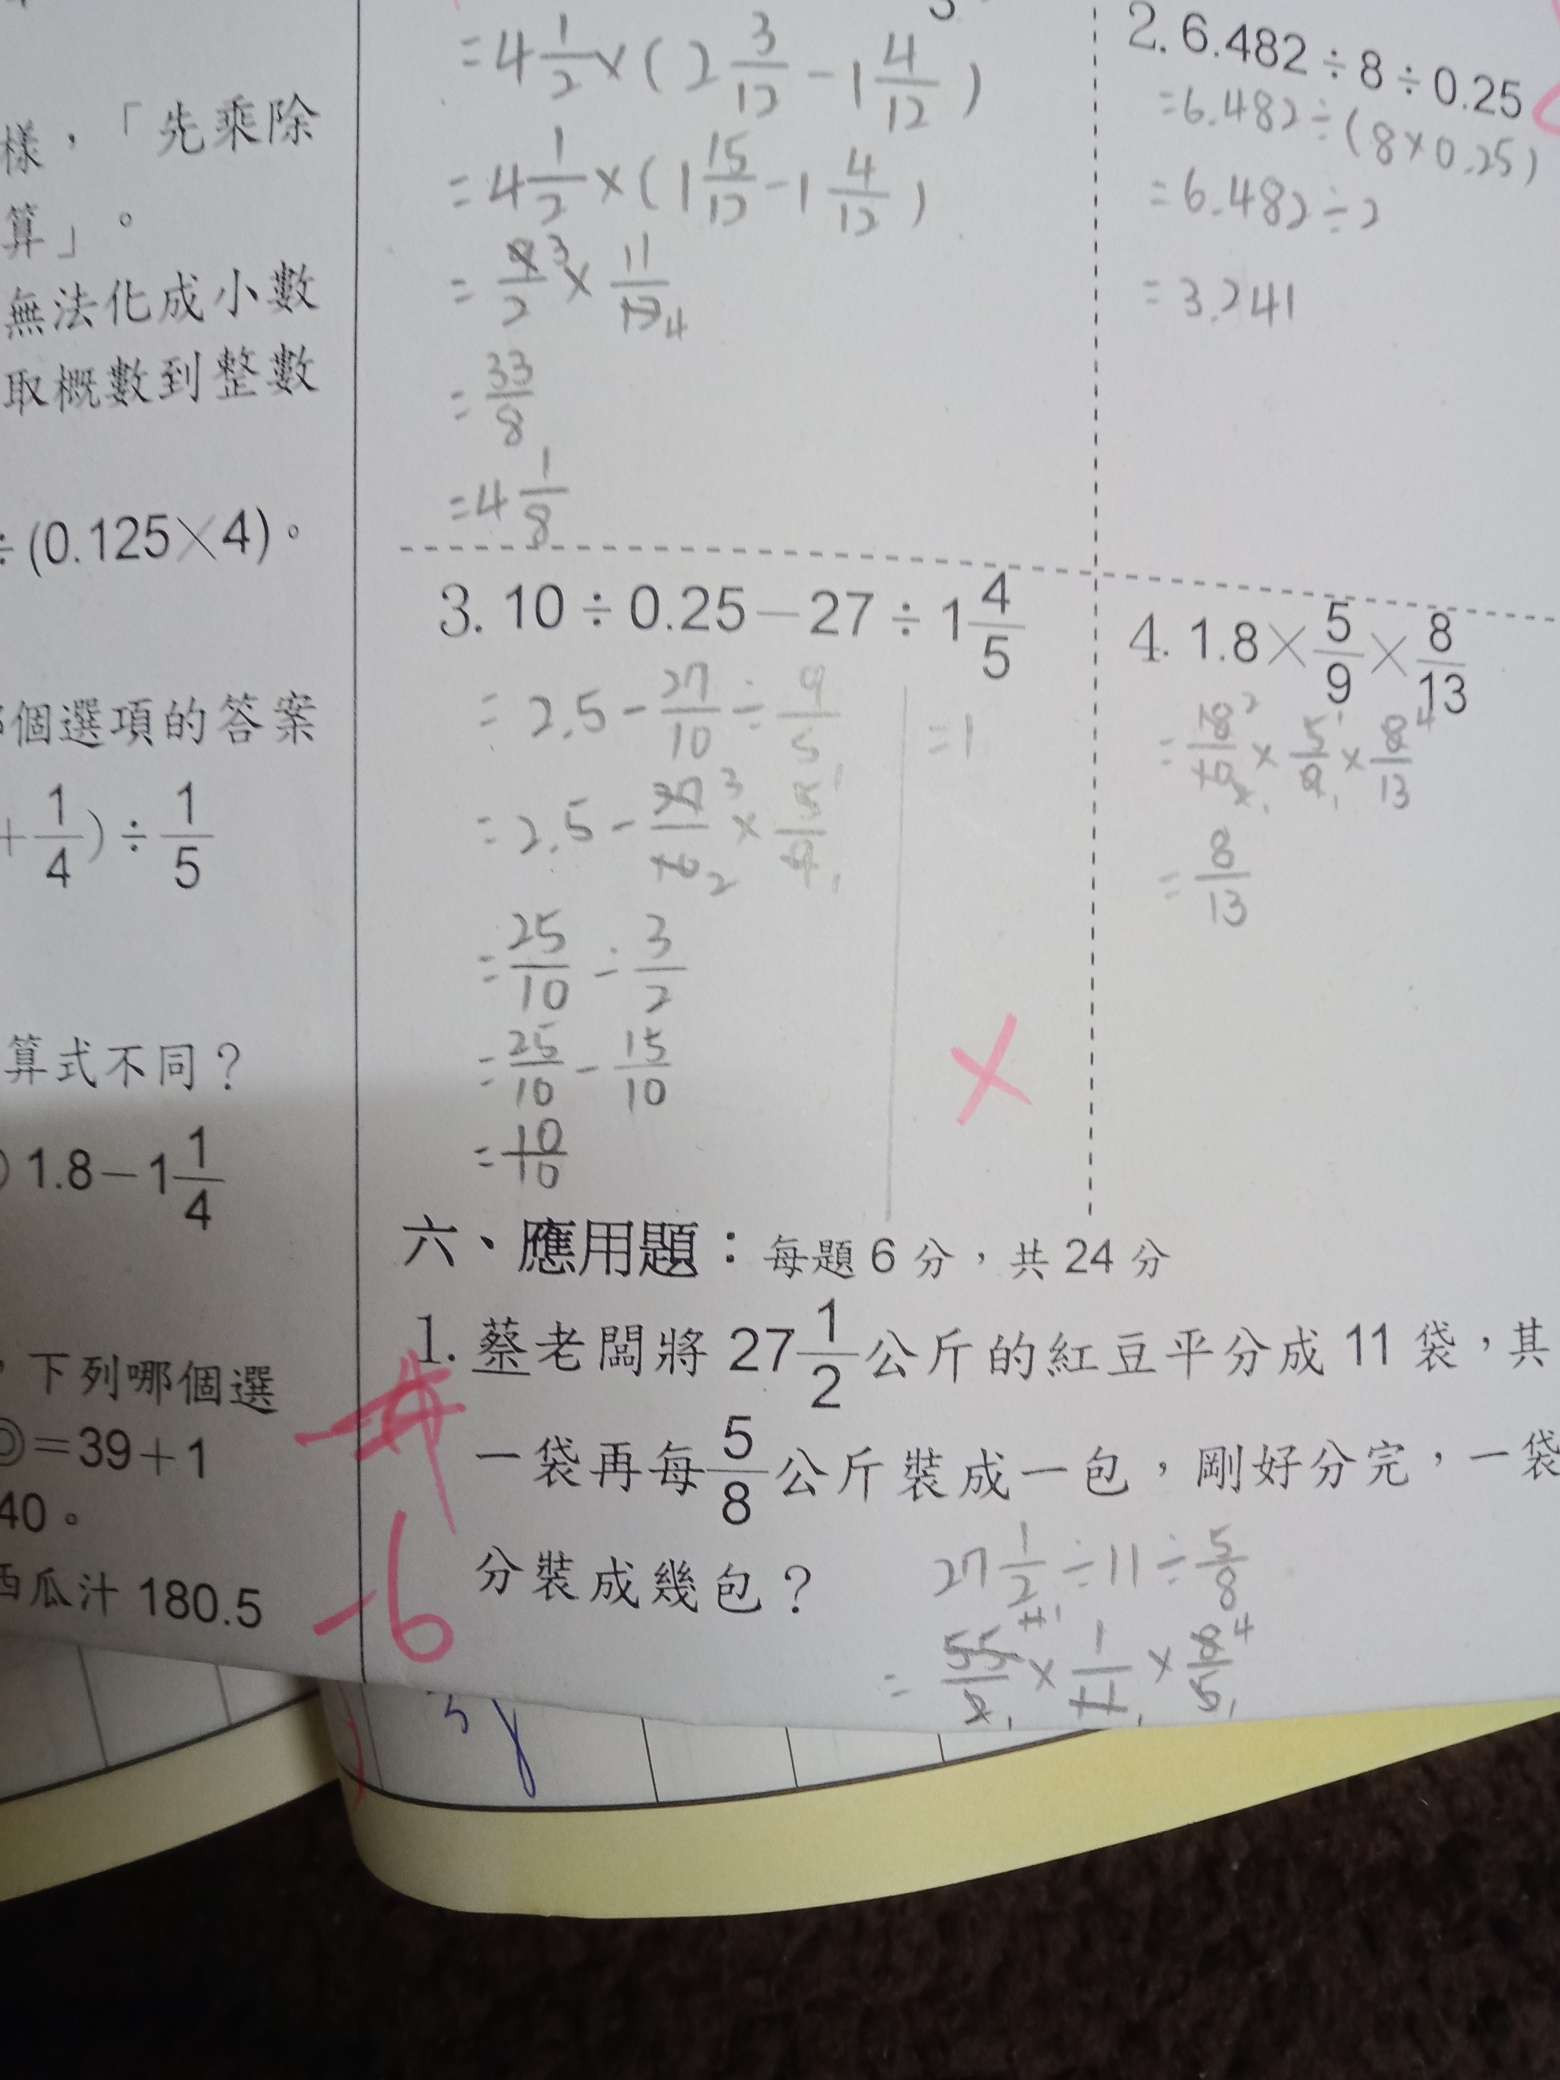 樣，「先乘除
算」。
無法化成小數
取概數到整數
÷(0.125×4)。
個選項的答案
+1/4)÷1/5
算式不同？
1.8－1 1/4
，下列哪個選
◎=39+1
40。
西瓜汁 180.5
=4 1/2×(2 3/12－1 4/12)
=4 1/2×(1 15/12－1 4/12)
=9/2 3×11/12 4
=33/8
=4 1/8
2. 6.482÷8÷0.25
=6.482÷(8×0.25)
=6.482÷2
=3.241
3. 10÷0.25－27÷1 4/5
=2.5－27/10÷9/5
=2.5－27/10 3 2×5/9 1 1
=25/10－3/2
=25/10－15/10
=10/10
=1
4. 1.8×5/9×8/13
=18/10 2×5/9 1 1×8/13 4
=8/13
六、應用題：每題 6 分，共 24 分
1. 蔡老闆將 27 1/2 公斤的紅豆平分成 11 袋，其
一袋再每 5/8 公斤裝成一包，剛好分完，一袋
分裝成幾包？
27 1/2÷11÷5/8
=55/2 11 1×1/11 1×8/5 4 1
-6